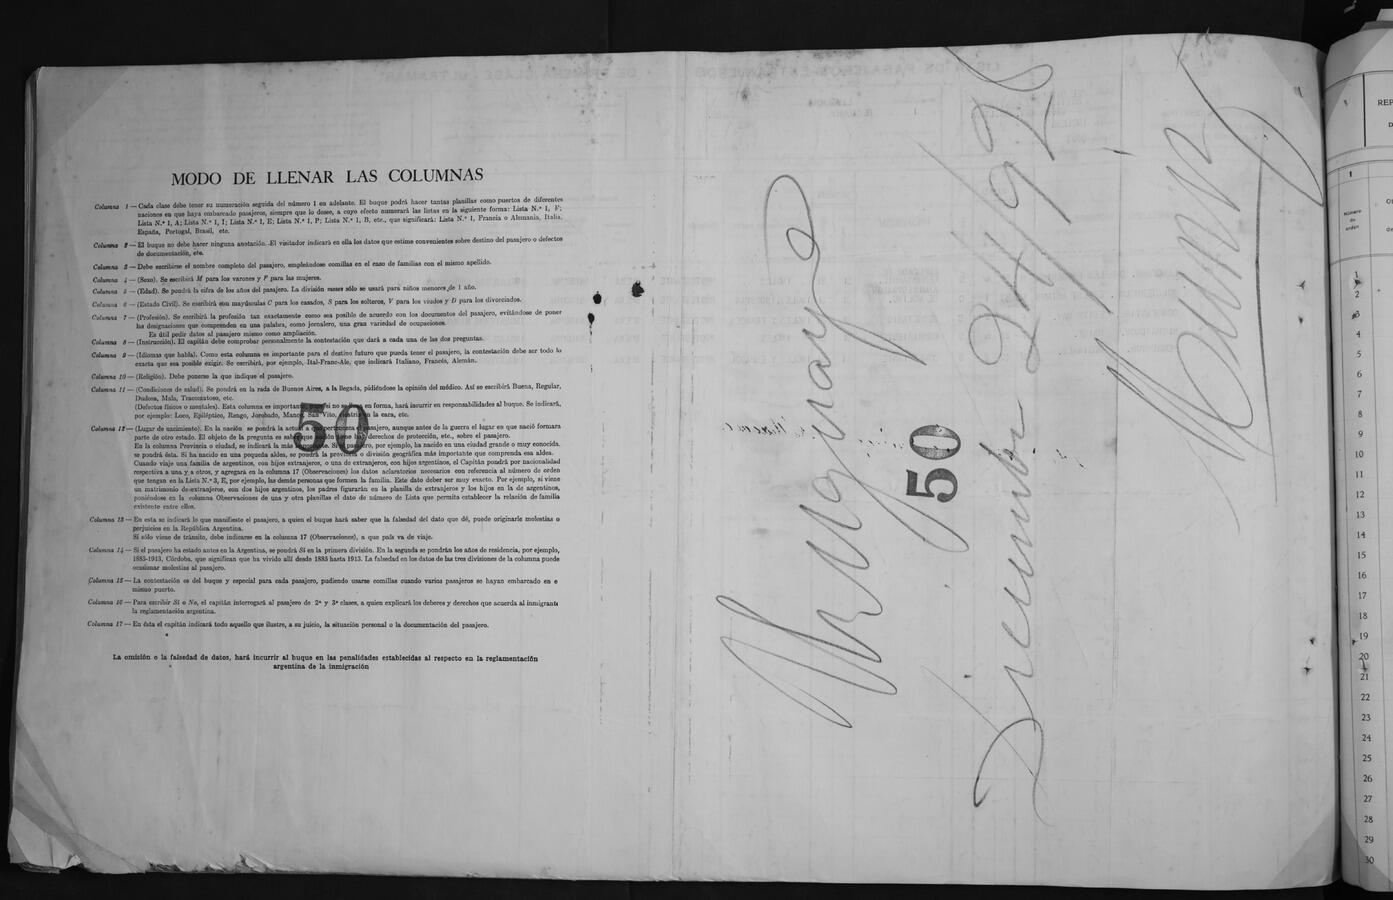 MODO DE LLENAR LAS COLUMNAS
Columna 1 — Cada clase debe tener su numeración seguida del número 1 en adelante. El buque podrá hacer tantas planillas como puertos de diferentes
naciones en que haya embarcado pasajeros, siempre que lo desee, a cuyo efecto numerará las listas en la siguiente forma: Lista N.º 1, F;
Lista N.º 1, A; Lista N.º 1, I; Lista N.º 1, E; Lista N.º 1, P; Lista N.º 1, B, etc., que significará: Lista N.º 1, Francia o Alemania, Italia,
España, Portugal, Brasil, etc.
Columna 2 — El buque no debe hacer ninguna anotación. El visitador indicará en ella los datos que estime convenientes sobre destino del pasajero o defectos
de documentación, etc.
Columna 3 — Debe escribirse el nombre completo del pasajero, empleándose comillas en el caso de familias con el mismo apellido.
Columna 4 — (Sexo). Se escribirá M para los varones y F para las mujeres.
Columna 5 — (Edad). Se pondrá la cifra de los años del pasajero. La división meses sólo se usará para niños menores de 1 año.
Columna 6 — (Estado Civil). Se escribirá con mayúsculas C para los casados, S para los solteros, V para los viudos y D para los divorciados.
Columna 7 — (Profesión). Se escribirá la profesión tan exactamente como sea posible de acuerdo con los documentos del pasajero, evitándose de poner
las designaciones que comprenden en una palabra, como jornalero, una gran variedad de ocupaciones.
Es útil pedir datos al pasajero mismo como ampliación.
Columna 8 — (Instrucción). El capitán debe comprobar personalmente la contestación que dará a cada una de las dos preguntas.
Columna 9 — (Idiomas que habla). Como esta columna es importante para el destino futuro que pueda tener el pasajero, la contestación debe ser todo lo
exacta que sea posible exigir. Se escribirá, por ejemplo, Ital-Franc-Ale, que indicará Italiano, Francés, Alemán.
Columna 10 — (Religión). Debe ponerse la que indique el pasajero.
Columna 11 — (Condiciones de salud). Se pondrá en la rada de Buenos Aires, a la llegada, pidiéndose la opinión del médico. Así se escribirá Buena, Regular,
Dudosa, Mala, Tracomatoso, etc.
(Defectos físicos o mentales). Esta columna es importante si no se llena en forma, hará incurrir en responsabilidades al buque. Se indicará,
por ejemplo: Loco, Epiléptico, Rengo, Jorobado, Manco, San Vito, la cara, etc.
Columna 12 — (Lugar de nacimiento). En la nación se pondrá la actual a que pertenezca el pasajero, aunque antes de la guerra el lugar en que nació formara
parte de otro estado. El objeto de la pregunta es derechos de protección, etc., sobre el pasajero.
En la columna Provincia o ciudad, se indicará la más importante. Si el pasajero, por ejemplo, ha nacido en una ciudad grande o muy conocida.
se pondrá ésta. Si ha nacido en una pequeña aldea, se pondrá la provincia o división geográfica más importante que comprenda esa aldea.
Cuando viaje una familia de argentinos, con hijos extranjeros, o una de extranjeros, con hijos argentinos, el Capitán pondrá por nacionalidad
respectiva a una y a otros, y agregará en la columna 17 (Observaciones) los datos aclaratorios necesarios con referencia al número de orden
que tengan en la Lista N.º 3, E, por ejemplo, las demás personas que formen la familia. Este dato deber ser muy exacto. Por ejemplo, si viene
un matrimonio de extranjeros, con dos hijos argentinos, los padres figurarán en la planilla de extranjeros y los hijos en la de argentinos,
poniéndose en la columna Observaciones de una y otra planillas el dato de número de Lista que permita establecer la relación de familia
existente entre ellos.
Columna 13 — En esta se indicará lo que manifieste el pasajero, a quien el buque hará saber que la falsedad del dato que dé, puede originarle molestias o
perjuicios en la República Argentina.
Si sólo viene de tránsito, debe indicarse en la columna 17 (Observaciones), a que país va de viaje.
Columna 14 — Si el pasajero ha estado antes en la Argentina, se pondrá Sí en la primera división. En la segunda se pondrán los años de residencia, por ejemplo,
1885-1913, Córdoba, que significan que ha vivido allí desde 1885 hasta 1913. La falsedad en los datos de las tres divisiones de la columna puede
ocasionar molestias al pasajero.
Columna 15 — La contestación es del buque y especial para cada pasajero, pudiendo usarse comillas cuando varios pasajeros se hayan embarcado en e
mismo puerto.
Columna 16 — Para escribir Sí o No, el capitán interrogará al pasajero de 2ª y 3ª clases, a quien explicará los deberes y derechos que acuerda al inmigrante
la reglamentación argentina.
Columna 17 — En ésta el capitán indicará todo aquello que ilustre, a su juicio, la situación personal o la documentación del pasajero.
La omisión o la falsedad de datos, hará incurrir al buque en las penalidades establecidas al respecto en la reglamentación
argentina de la inmigración
50
50
Diciembre 24/928
REP
1
1
2
3
4
5
6
7
8
9
10
11
12
13
14
15
16
17
18
19
20
21
22
23
24
25
26
27
28
29
30